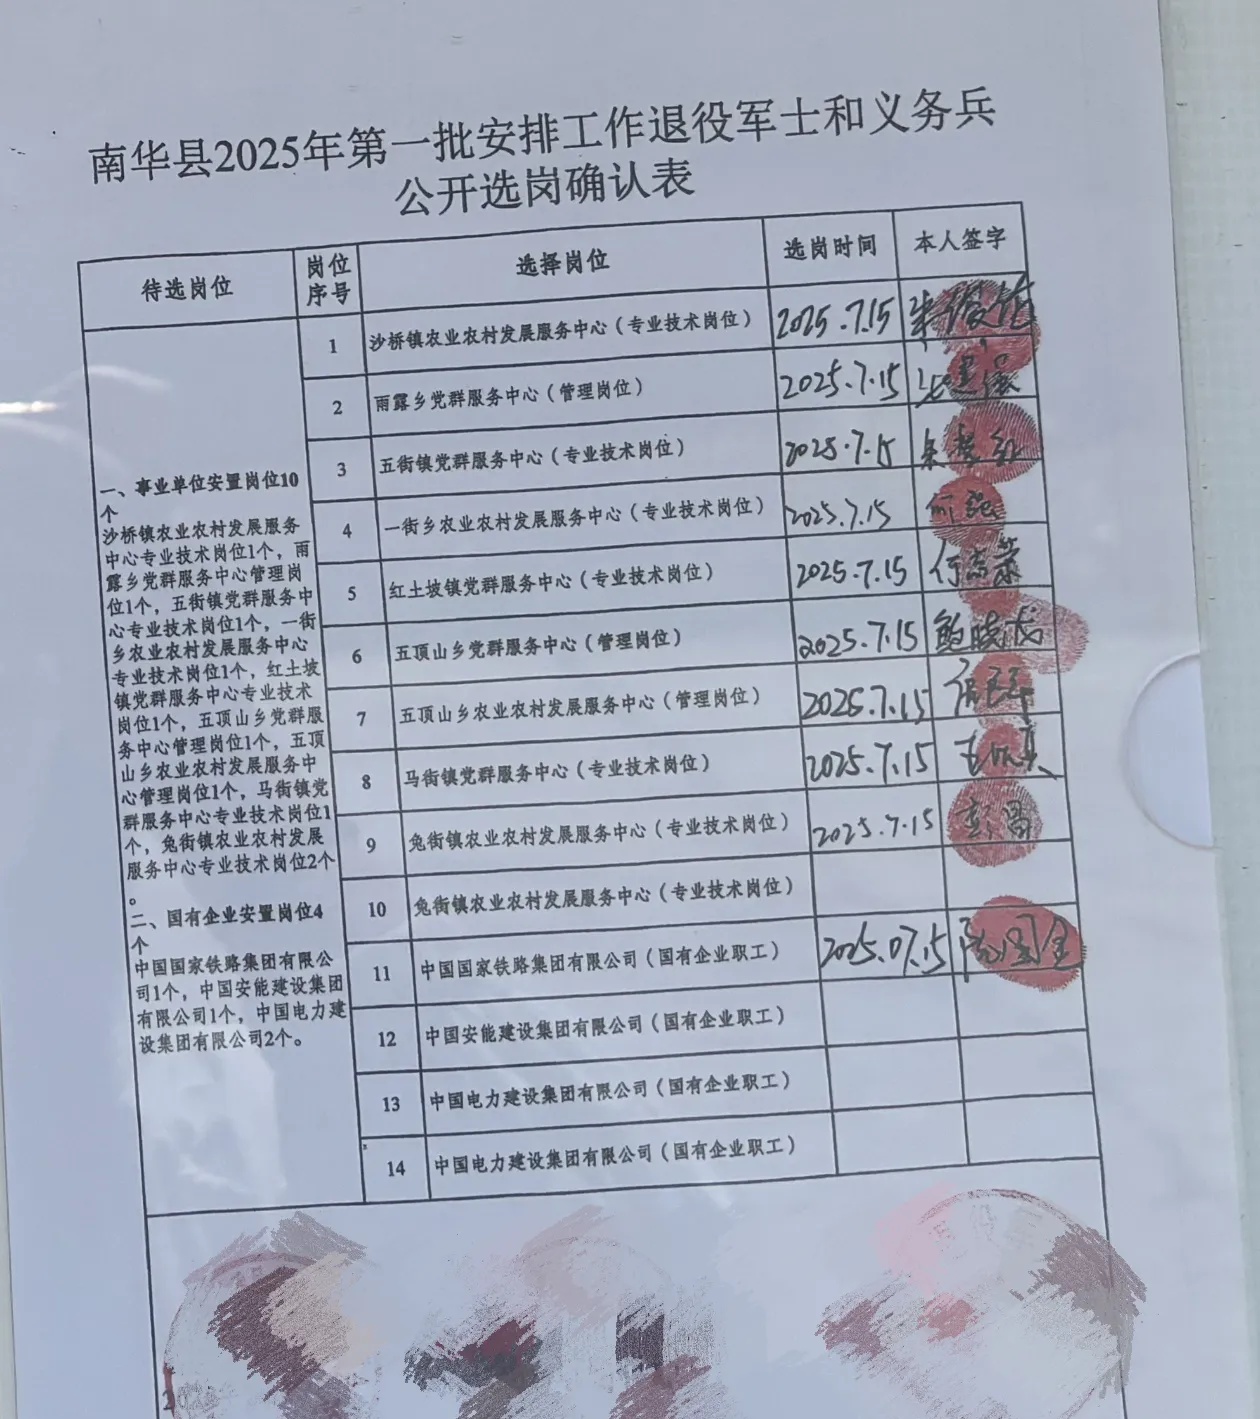 南华县2025年第一批安排工作退役军士和义务兵
公开选岗确认表
待选岗位
岗位
序号
选择岗位
选岗时间
本人签字
一、事业单位安置岗位10
个
沙桥镇农业农村发展服务
中心专业技术岗位1个，雨
露乡党群服务中心管理岗
位1个，五街镇党群服务中
心专业技术岗位1个，一街
乡农业农村发展服务中心
专业技术岗位1个，红土坡
镇党群服务中心专业技术
岗位1个，五顶山乡党群服
务中心管理岗位1个，五顶
山乡农业农村发展服务中
心管理岗位1个，马街镇党
群服务中心专业技术岗位1
个，兔街镇农业农村发展
服务中心专业技术岗位2个
。
二、国有企业安置岗位4
个
中国国家铁路集团有限公
司1个，中国安能建设集团
有限公司1个，中国电力建
设集团有限公司2个。
1 沙桥镇农业农村发展服务中心（专业技术岗位） 2025.7.15
2 雨露乡党群服务中心（管理岗位） 2025.7.15
3 五街镇党群服务中心（专业技术岗位） 2025.7.15
4 一街乡农业农村发展服务中心（专业技术岗位） 2025.7.15 何强
5 红土坡镇党群服务中心（专业技术岗位） 2025.7.15
6 五顶山乡党群服务中心（管理岗位） 2025.7.15 鲍晓龙
7 五顶山乡农业农村发展服务中心（管理岗位） 2025.7.15
8 马街镇党群服务中心（专业技术岗位） 2025.7.15
9 兔街镇农业农村发展服务中心（专业技术岗位） 2025.7.15
10 兔街镇农业农村发展服务中心（专业技术岗位）
11 中国国家铁路集团有限公司（国有企业职工） 2025.07.15
12 中国安能建设集团有限公司（国有企业职工）
13 中国电力建设集团有限公司（国有企业职工）
14 中国电力建设集团有限公司（国有企业职工）